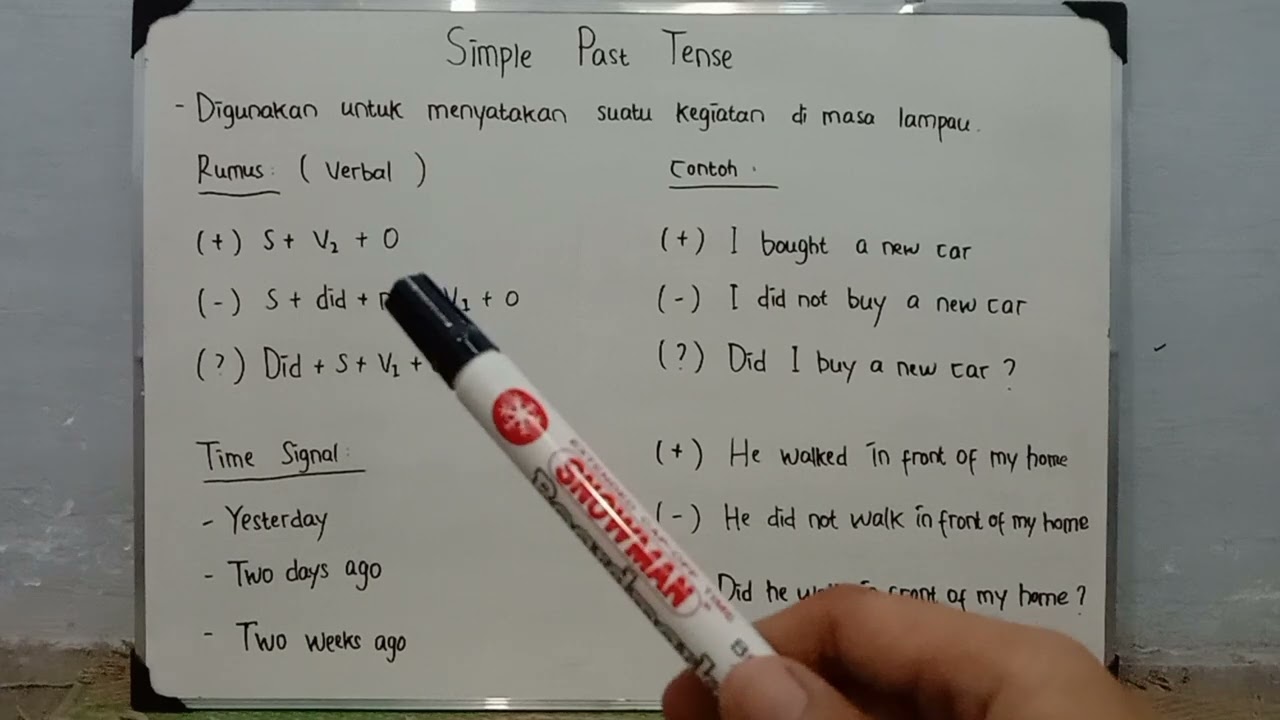 Simple Past Tense
- Digunakan untuk menyatakan suatu kegiatan di masa lampau.
Rumus: ( Verbal )
(+) S + V₂ + O
(-) S + did + V₁ + O
(?) Did + S + V₁ +
Time Signal:
- Yesterday
- Two days ago
- Two weeks ago
Contoh :
(+) I bought a new car
(-) I did not buy a new car
(?) Did I buy a new car ?
(+) He walked in front of my home
(-) He did not walk in front of my home
Did he in front of my home ?
SNOWMAN